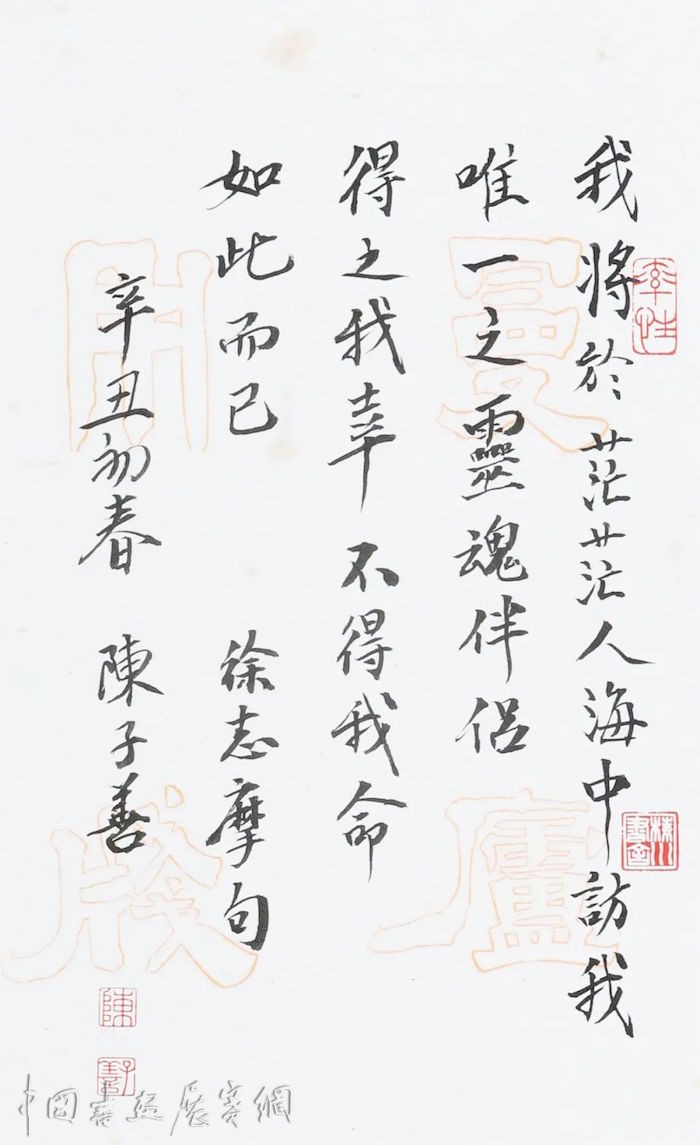 我将於茫茫人海中訪我
唯一之靈魂伴侶
得之我幸不得我命
如此而已 徐志摩句
辛丑初春 陳子善
率性
曼廬用牋
陳
子善
中國書画展賽網